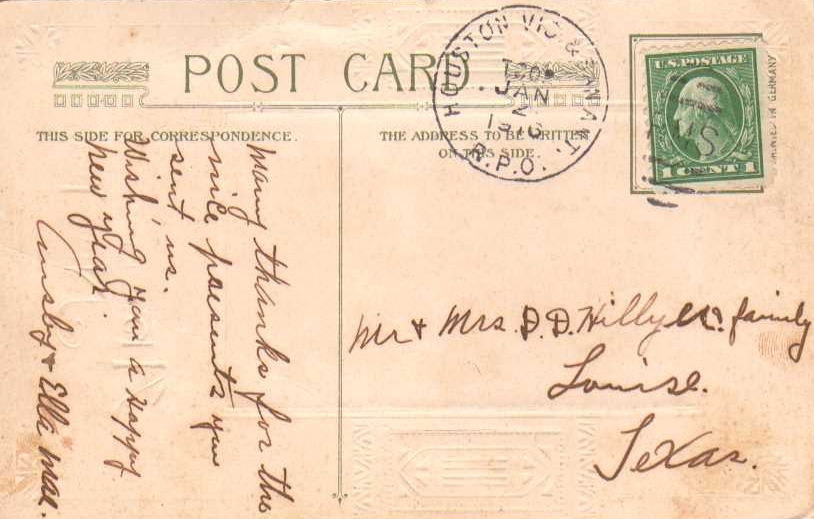 POST CARD
THIS SIDE FOR CORRESPONDENCE.
THE ADDRESS TO BE WRITTEN
ON THIS SIDE.
HOUSTON VIC. & SAN ANT.
JAN
2
1916
R.P.O.
U.S. POSTAGE
1 CENT 1
PRINTED IN GERMANY
Many thanks for the
nice presents you
sent us.
Wishing you a Happy
New Year.
& Ella Mae.
Mr & Mrs. D.D. Hillyer & family
Louise.
Texas.